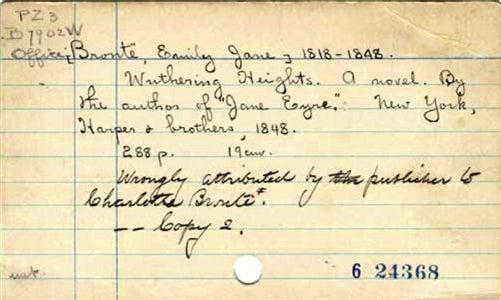 PZ3
.B7902W
Office
[Brontë, Emily Jane] 1818-1848.
Wuthering Heights. A novel. By
the author of "Jane Eyre." New York,
Harper & brothers, 1848.
288 p. 19cm.
Wrongly attributed by the publisher to
Charlotte Brontë.
-- Copy 2.
6 24368